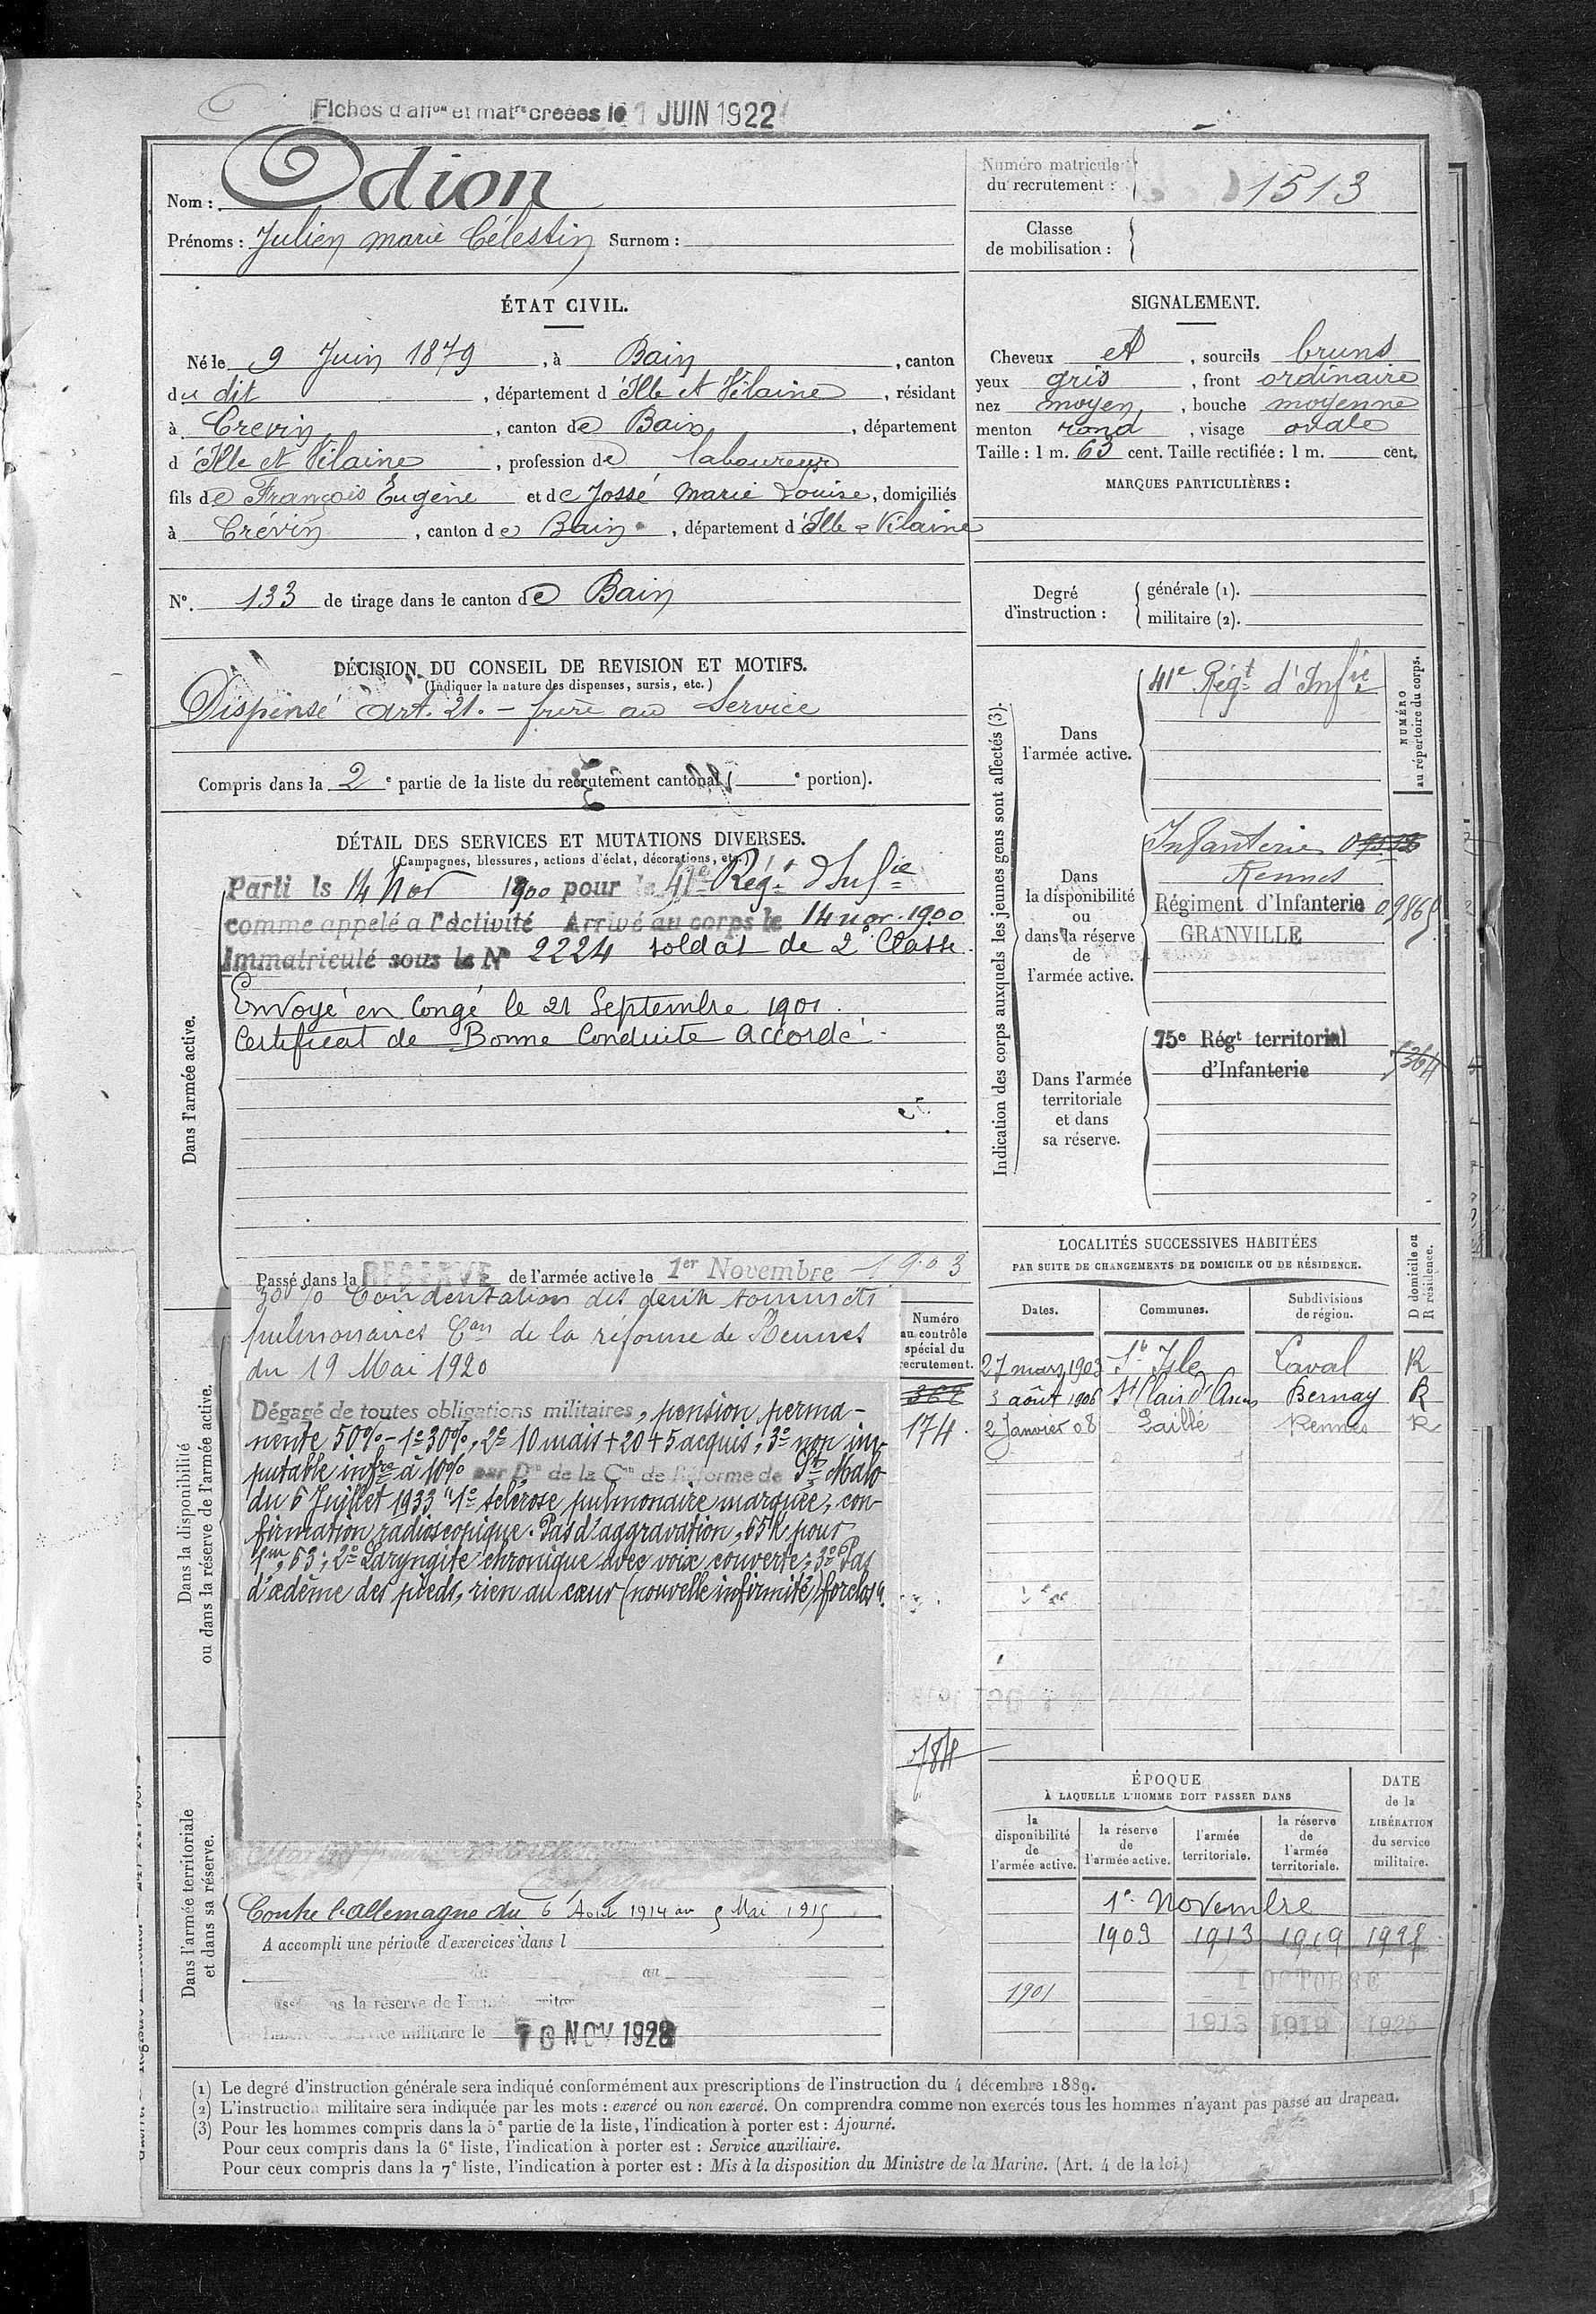 Fiches d'aff^on et mat^re créées le 1 JUIN 1922
Nom : Odion
Prénoms : Julien marie Célestin Surnom :
Numéro matricule
du recrutement : 1513
Classe
de mobilisation :
ÉTAT CIVIL.
Né le 9 Juin 1879, à Bain, canton
du dit, département d'Ille et Vilaine, résidant
à Crevin, canton de Bain, département
d'Ille et Vilaine, profession de laboureur
fils de François Eugène et de Jossé Marie Louise, domiciliés
à Crévin, canton de Bain, département d'Ille & Vilaine
SIGNALEMENT.
Cheveux et, sourcils bruns
yeux gris, front ordinaire
nez moyen, bouche moyenne
menton rond, visage ovale
Taille : 1 m. 63 cent. Taille rectifiée : 1 m. cent.
MARQUES PARTICULIÈRES :
N°. 133 de tirage dans le canton de Bain
Degré
d'instruction :
générale (1).
militaire (2).
DÉCISION DU CONSEIL DE REVISION ET MOTIFS.
(Indiquer la nature des dispenses, sursis, etc.)
Dispensé Art. 21. - frère au Service
Compris dans la 2e partie de la liste du recrutement cantonal ( e portion).
DÉTAIL DES SERVICES ET MUTATIONS DIVERSES.
(Campagnes, blessures, actions d'éclat, décorations, etc.)
Dans l'armée active.
Parti le 14 Nov 1900 pour le 41e Rég^t d'Inf^ie
comme appelé a l'activité Arrivé au corps le 14 nov. 1900
Immatriculé sous le N° 2224 soldat de 2e Classe.
Envoyé en Congé le 21 Septembre 1901.
Certificat de Bonne Conduite Accordé.
Passé dans la RESERVE de l'armée active le 1er Novembre 1903
Indication des corps auxquels les jeunes gens sont affectés (3).
NUMÉRO
au répertoire du corps.
Dans
l'armée active.
41e Rég^t d'Inf^ie
Dans
la disponibilité
ou
dans la réserve
de
l'armée active.
Infanterie
Rennes
Régiment d'Infanterie
GRANVILLE
Dans l'armée
territoriale
et dans
sa réserve.
75e Rég^t territorial
d'Infanterie
Dans la disponibilité
ou dans la réserve de l'armée active.
30 % Condensation des deux sommets
pulmonaires C^on de la réforme de Rennes
du 19 Mai 1920
Dégagé de toutes obligations militaires, pension perma-
nente 50% - 1° 30%, 2° 10 mais + 20 + 5 acquis, 3° non im-
putable inf^re à 10% par D^on de la C^on de Réforme de S^t Malo
du 6 Juillet 1933 "1° sclérose pulmonaire marquée, con-
firmation radioscopique. Pas d'aggravation, 65 K pour
1m, 63; 2° Laryngite chronique avec voix couverte; 3° Pas
d'œdème des pieds, rien au cœur (nouvelle infirmité) forclos".
Numéro
au contrôle
spécial du
recrutement.
174
LOCALITÉS SUCCESSIVES HABITÉES
PAR SUITE DE CHANGEMENTS DE DOMICILE OU DE RÉSIDENCE.
D domicile ou
R résidence.
Dates. Communes. Subdivisions
de région.
27 mars 1903 S^te Isle Laval R
3 août 1906 S^t Clair d'Arcey Bernay R
2 Janvier 08 Laillé Rennes R
Dans l'armée territoriale
et dans sa réserve.
Campagne
Contre l'allemagne du 6 Août 1914 au 5 Mai 1915
A accompli une période d'exercices dans l
du au
la réserve de l'
service militaire le 10 NOV 1928
ÉPOQUE
À LAQUELLE L'HOMME DOIT PASSER DANS
DATE
de la
LIBÉRATION
du service
militaire.
la
disponibilité
de
l'armée active.
la réserve
de
l'armée active.
l'armée
territoriale.
la réserve
de
l'armée
territoriale.
1er Novembre
1903 1913 1919
1 OCTOBRE
1901
1913 1919 1926
(1) Le degré d'instruction générale sera indiqué conformément aux prescriptions de l'instruction du 4 décembre 1889.
(2) L'instruction militaire sera indiquée par les mots : exercé ou non exercé. On comprendra comme non exercés tous les hommes n'ayant pas passé au drapeau.
(3) Pour les hommes compris dans la 5e partie de la liste, l'indication à porter est : Ajourné.
Pour ceux compris dans la 6e liste, l'indication à porter est : Service auxiliaire.
Pour ceux compris dans la 7e liste, l'indication à porter est : Mis à la disposition du Ministre de la Marine. (Art. 4 de la loi.)